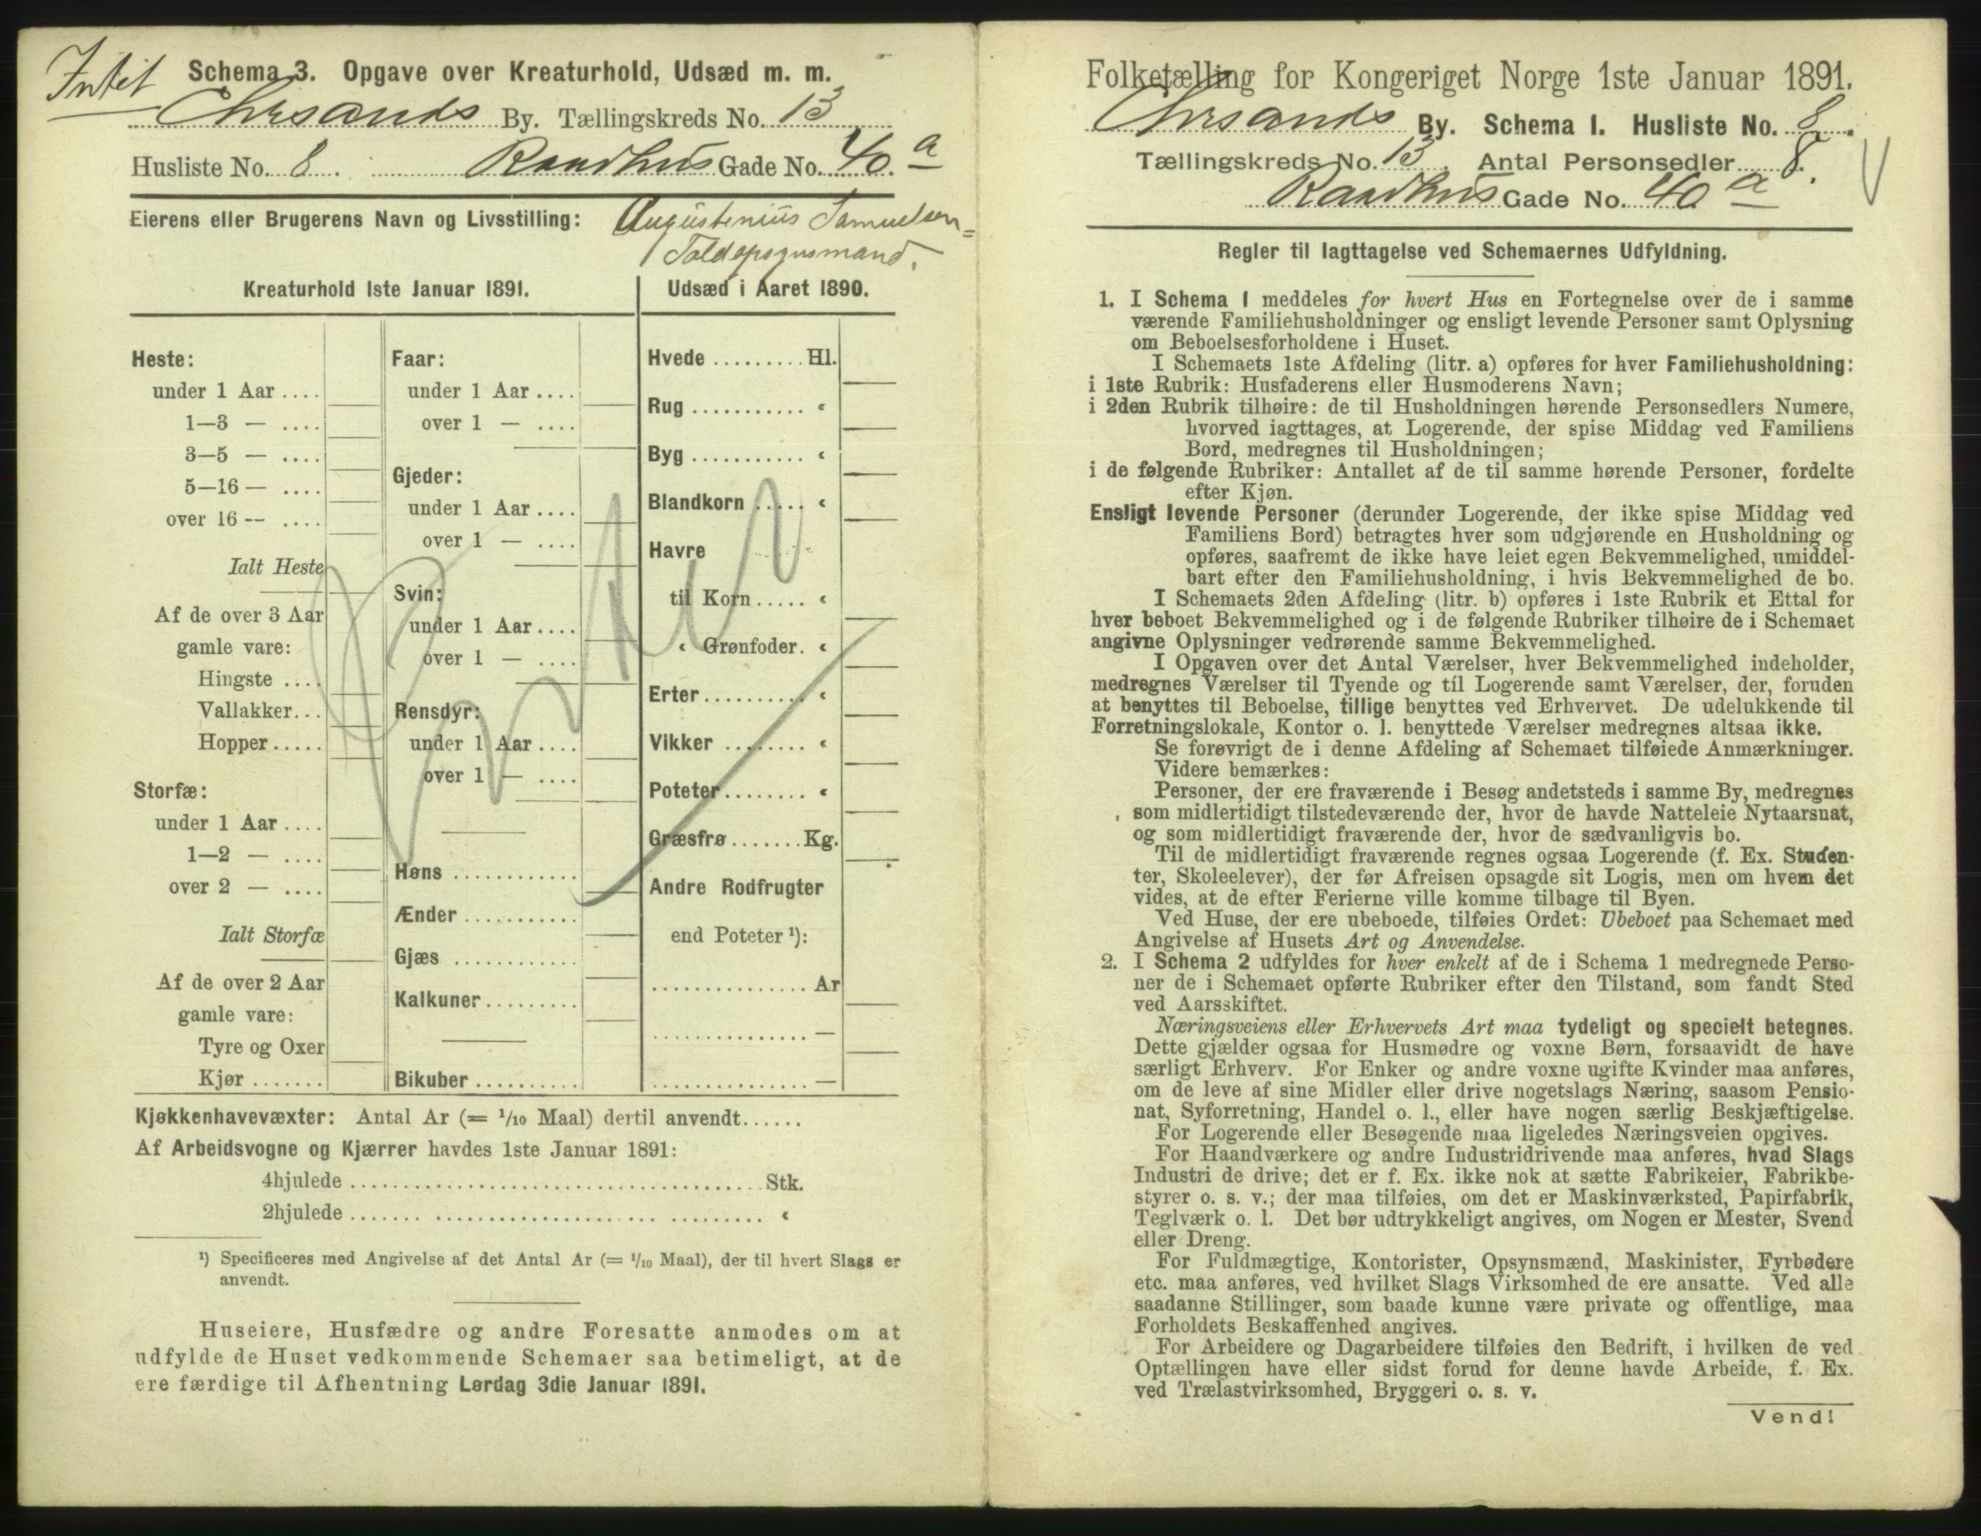 Intet
Schema 3. Opgave over Kreaturhold, Udsæd m. m.
Chrsands By. Tællingskreds No. 13
Husliste No. 8. Raadhus Gade No. 40 a
Eierens eller Brugerens Navn og Livsstilling: Augustenius Samuelsen
Toldopsynsmand.
Kreaturhold 1ste Januar 1891.
Heste:
under 1 Aar ....
1—3 — ....
3—5 — ....
5—16 — ....
over 16 — ....
Ialt Heste
Af de over 3 Aar
gamle vare:
Hingste ....
Vallakker...
Hopper.....
Storfæ:
under 1 Aar ....
1—2 — ....
over 2 — ....
Ialt Storfæ
Af de over 2 Aar
gamle vare:
Tyre og Oxer
Kjør .......
Faar:
under 1 Aar ....
over 1 — ....
Gjeder:
under 1 Aar ....
over 1 — ....
Svin:
under 1 Aar ....
over 1 — ....
Rensdyr:
under 1 Aar ....
over 1 — ....
Høns ............
Ænder ...........
Gjæs ............
Kalkuner.........
Bikuber ..........
Udsæd i Aaret 1890.
Hvede ......... Hl.
Rug ........... "
Byg ........... "
Blandkorn ..... "
Havre
til Korn ..... "
" Grønfoder. "
Erter .......... "
Vikker ........ "
Poteter ........ "
Græsfrø ....... Kg.
Andre Rodfrugter
end Poteter ¹):
............... Ar
............... —
............... —
Kjøkkenhavevæxter: Antal Ar (= 1/10 Maal) dertil anvendt......
Af Arbeidsvogne og Kjærrer havdes 1ste Januar 1891:
4hjulede ....................................... Stk.
2hjulede ....................................... "
¹) Specificeres med Angivelse af det Antal Ar (= 1/10 Maal), der til hvert Slags er
anvendt.
Huseiere, Husfædre og andre Foresatte anmodes om at
udfylde de Huset vedkommende Schemaer saa betimeligt, at de
ere færdige til Afhentning Lørdag 3die Januar 1891.
Folketælling for Kongeriget Norge 1ste Januar 1891.
Chrsands By. Schema 1. Husliste No. 8.
Tællingskreds No. 13. Antal Personsedler 8.
Raadhus Gade No. 40 a
Regler til Iagttagelse ved Schemaernes Udfyldning.
1. I Schema 1 meddeles for hvert Hus en Fortegnelse over de i samme
værende Familiehusholdninger og ensligt levende Personer samt Oplysning
om Beboelsesforholdene i Huset.
I Schemaets 1ste Afdeling (litr. a) opføres for hver Familiehusholdning:
i 1ste Rubrik: Husfaderens eller Husmoderens Navn;
i 2den Rubrik tilhøire: de til Husholdningen hørende Personsedlers Numere,
hvorved iagttages, at Logerende, der spise Middag ved Familiens
Bord, medregnes til Husholdningen;
i de følgende Rubriker: Antallet af de til samme hørende Personer, fordelte
efter Kjøn.
Ensligt levende Personer (derunder Logerende, der ikke spise Middag ved
Familiens Bord) betragtes hver som udgjørende en Husholdning og
opføres, saafremt de ikke have leiet egen Bekvemmelighed, umiddel-
bart efter den Familiehusholdning, i hvis Bekvemmelighed de bo.
I Schemaets 2den Afdeling (litr. b) opføres i 1ste Rubrik et Ettal for
hver beboet Bekvemmelighed og i de følgende Rubriker tilhøire de i Schemaet
angivne Oplysninger vedrørende samme Bekvemmelighed.
I Opgaven over det Antal Værelser, hver Bekvemmelighed indeholder,
medregnes Værelser til Tyende og til Logerende samt Værelser, der, foruden
at benyttes til Beboelse, tillige benyttes ved Erhvervet. De udelukkende til
Forretningslokale, Kontor o. l. benyttede Værelser medregnes altsaa ikke.
Se forøvrigt de i denne Afdeling af Schemaet tilføiede Anmærkninger.
Videre bemærkes:
Personer, der ere fraværende i Besøg andetsteds i samme By, medregnes
som midlertidigt tilstedeværende der, hvor de havde Natteleie Nytaarsnat,
og som midlertidigt fraværende der, hvor de sædvanligvis bo.
Til de midlertidigt fraværende regnes ogsaa Logerende (f. Ex. Studen-
ter, Skoleelever), der før Afreisen opsagde sit Logis, men om hvem det
vides, at de efter Ferierne ville komme tilbage til Byen.
Ved Huse, der ere ubeboede, tilføies Ordet: Ubeboet paa Schemaet med
Angivelse af Husets Art og Anvendelse.
2. I Schema 2 udfyldes for hver enkelt af de i Schema 1 medregnede Perso-
ner de i Schemaet opførte Rubriker efter den Tilstand, som fandt Sted
ved Aarsskiftet.
Næringsveiens eller Erhvervets Art maa tydeligt og specielt betegnes.
Dette gjælder ogsaa for Husmødre og voxne Børn, forsaavidt de have
særligt Erhverv. For Enker og andre voxne ugifte Kvinder maa anføres,
om de leve af sine Midler eller drive nogetslags Næring, saasom Pensio-
nat, Syforretning, Handel o. l., eller have nogen særlig Beskjæftigelse.
For Logerende eller Besøgende maa ligeledes Næringsveien opgives.
For Haandværkere og andre Industridrivende maa anføres, hvad Slags
Industri de drive; det er f. Ex. ikke nok at sætte Fabrikeier, Fabrikbe-
styrer o. s. v.; der maa tilføies, om det er Maskinværksted, Papirfabrik,
Teglværk o. l. Det bør udtrykkeligt angives, om Nogen er Mester, Svend
eller Dreng.
For Fuldmægtige, Kontorister, Opsynsmænd, Maskinister, Fyrbødere
etc. maa anføres, ved hvilket Slags Virksomhed de ere ansatte. Ved alle
saadanne Stillinger, som baade kunne være private og offentlige, maa
Forholdets Beskaffenhed angives.
For Arbeidere og Dagarbeidere tilføies den Bedrift, i hvilken de ved
Optællingen have eller sidst forud for denne havde Arbeide, f. Ex.
ved Trælastvirksomhed, Bryggeri o. s. v.
Vend!